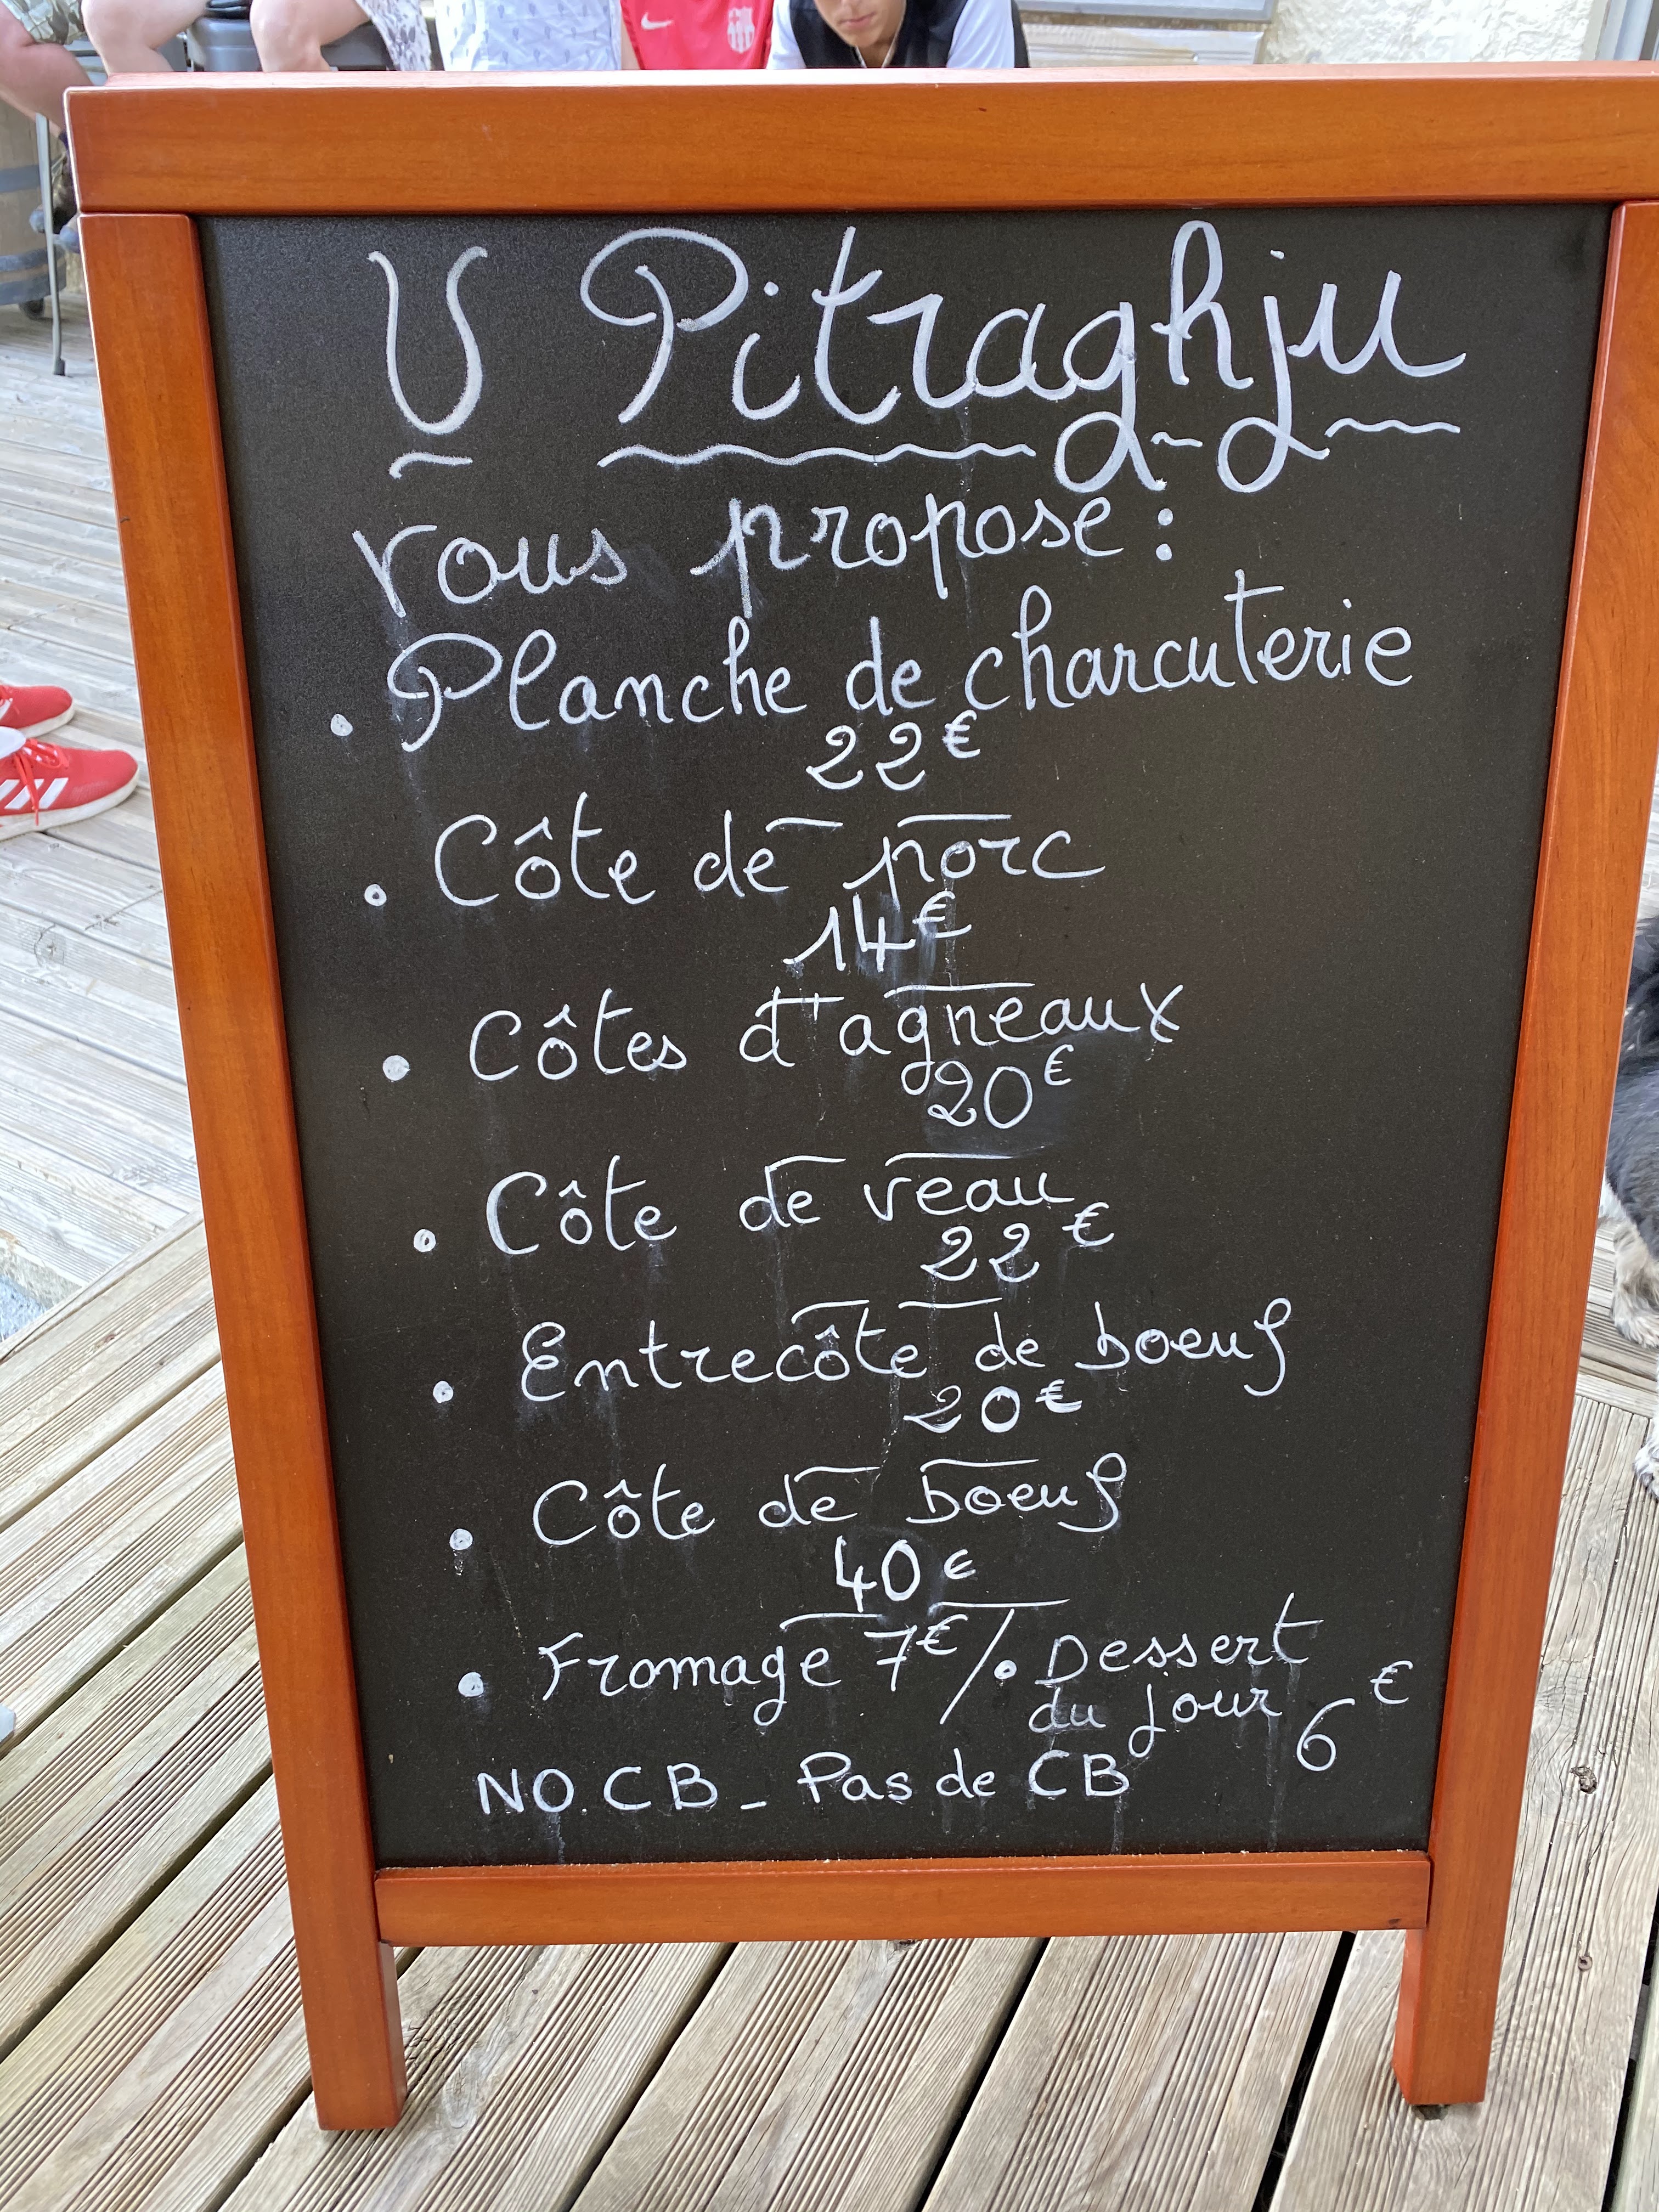 U Pitraghju
vous propose :
. Planche de charcuterie
22€
. Côte de porc
14€
. Côtes d'agneaux
20€
. Côte de veau
22€
. Entrecôte de boeuf
20€
. Côte de boeuf
40€
. Fromage 7€/. Dessert
du jour 6€
NO.CB_ Pas de CB